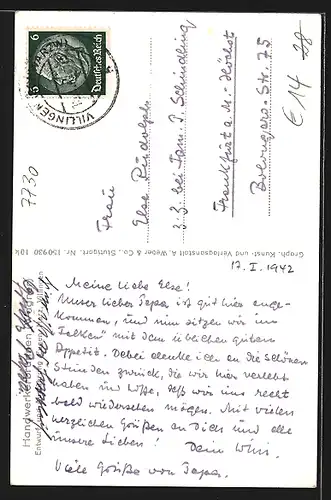 17. I. 1942
Meine liebe Else!
Unser lieber Papa ist gut hier ange-
kommen, und nun sitzen wir im
"Falken" mit dem üblichen guten
Appetit. Dabei denke ich an die schönen
Stunden zurück, die wir hier verlebt
haben und hoffe, daß wir uns recht
bald wiedersehen mögen. Mit vielen
herzlichen Grüßen an Dich und alle
unsere Lieben! Dein Willi.
Viele Grüße von Papa.
Frau
Else Rudolph
z. Z. bei Fam. J. Schindling
Frankfurt a. M. - Höchst
Bolongaro-Str. 75
Deutsches Reich
6
VILLINGEN
7730
€ 14
28
Graph. Kunst- und Verlagsanstalt A. Weber & Co., Stuttgart Nr. 150930 10k
Handwerkerbrunnen
Entwurf
Villingen